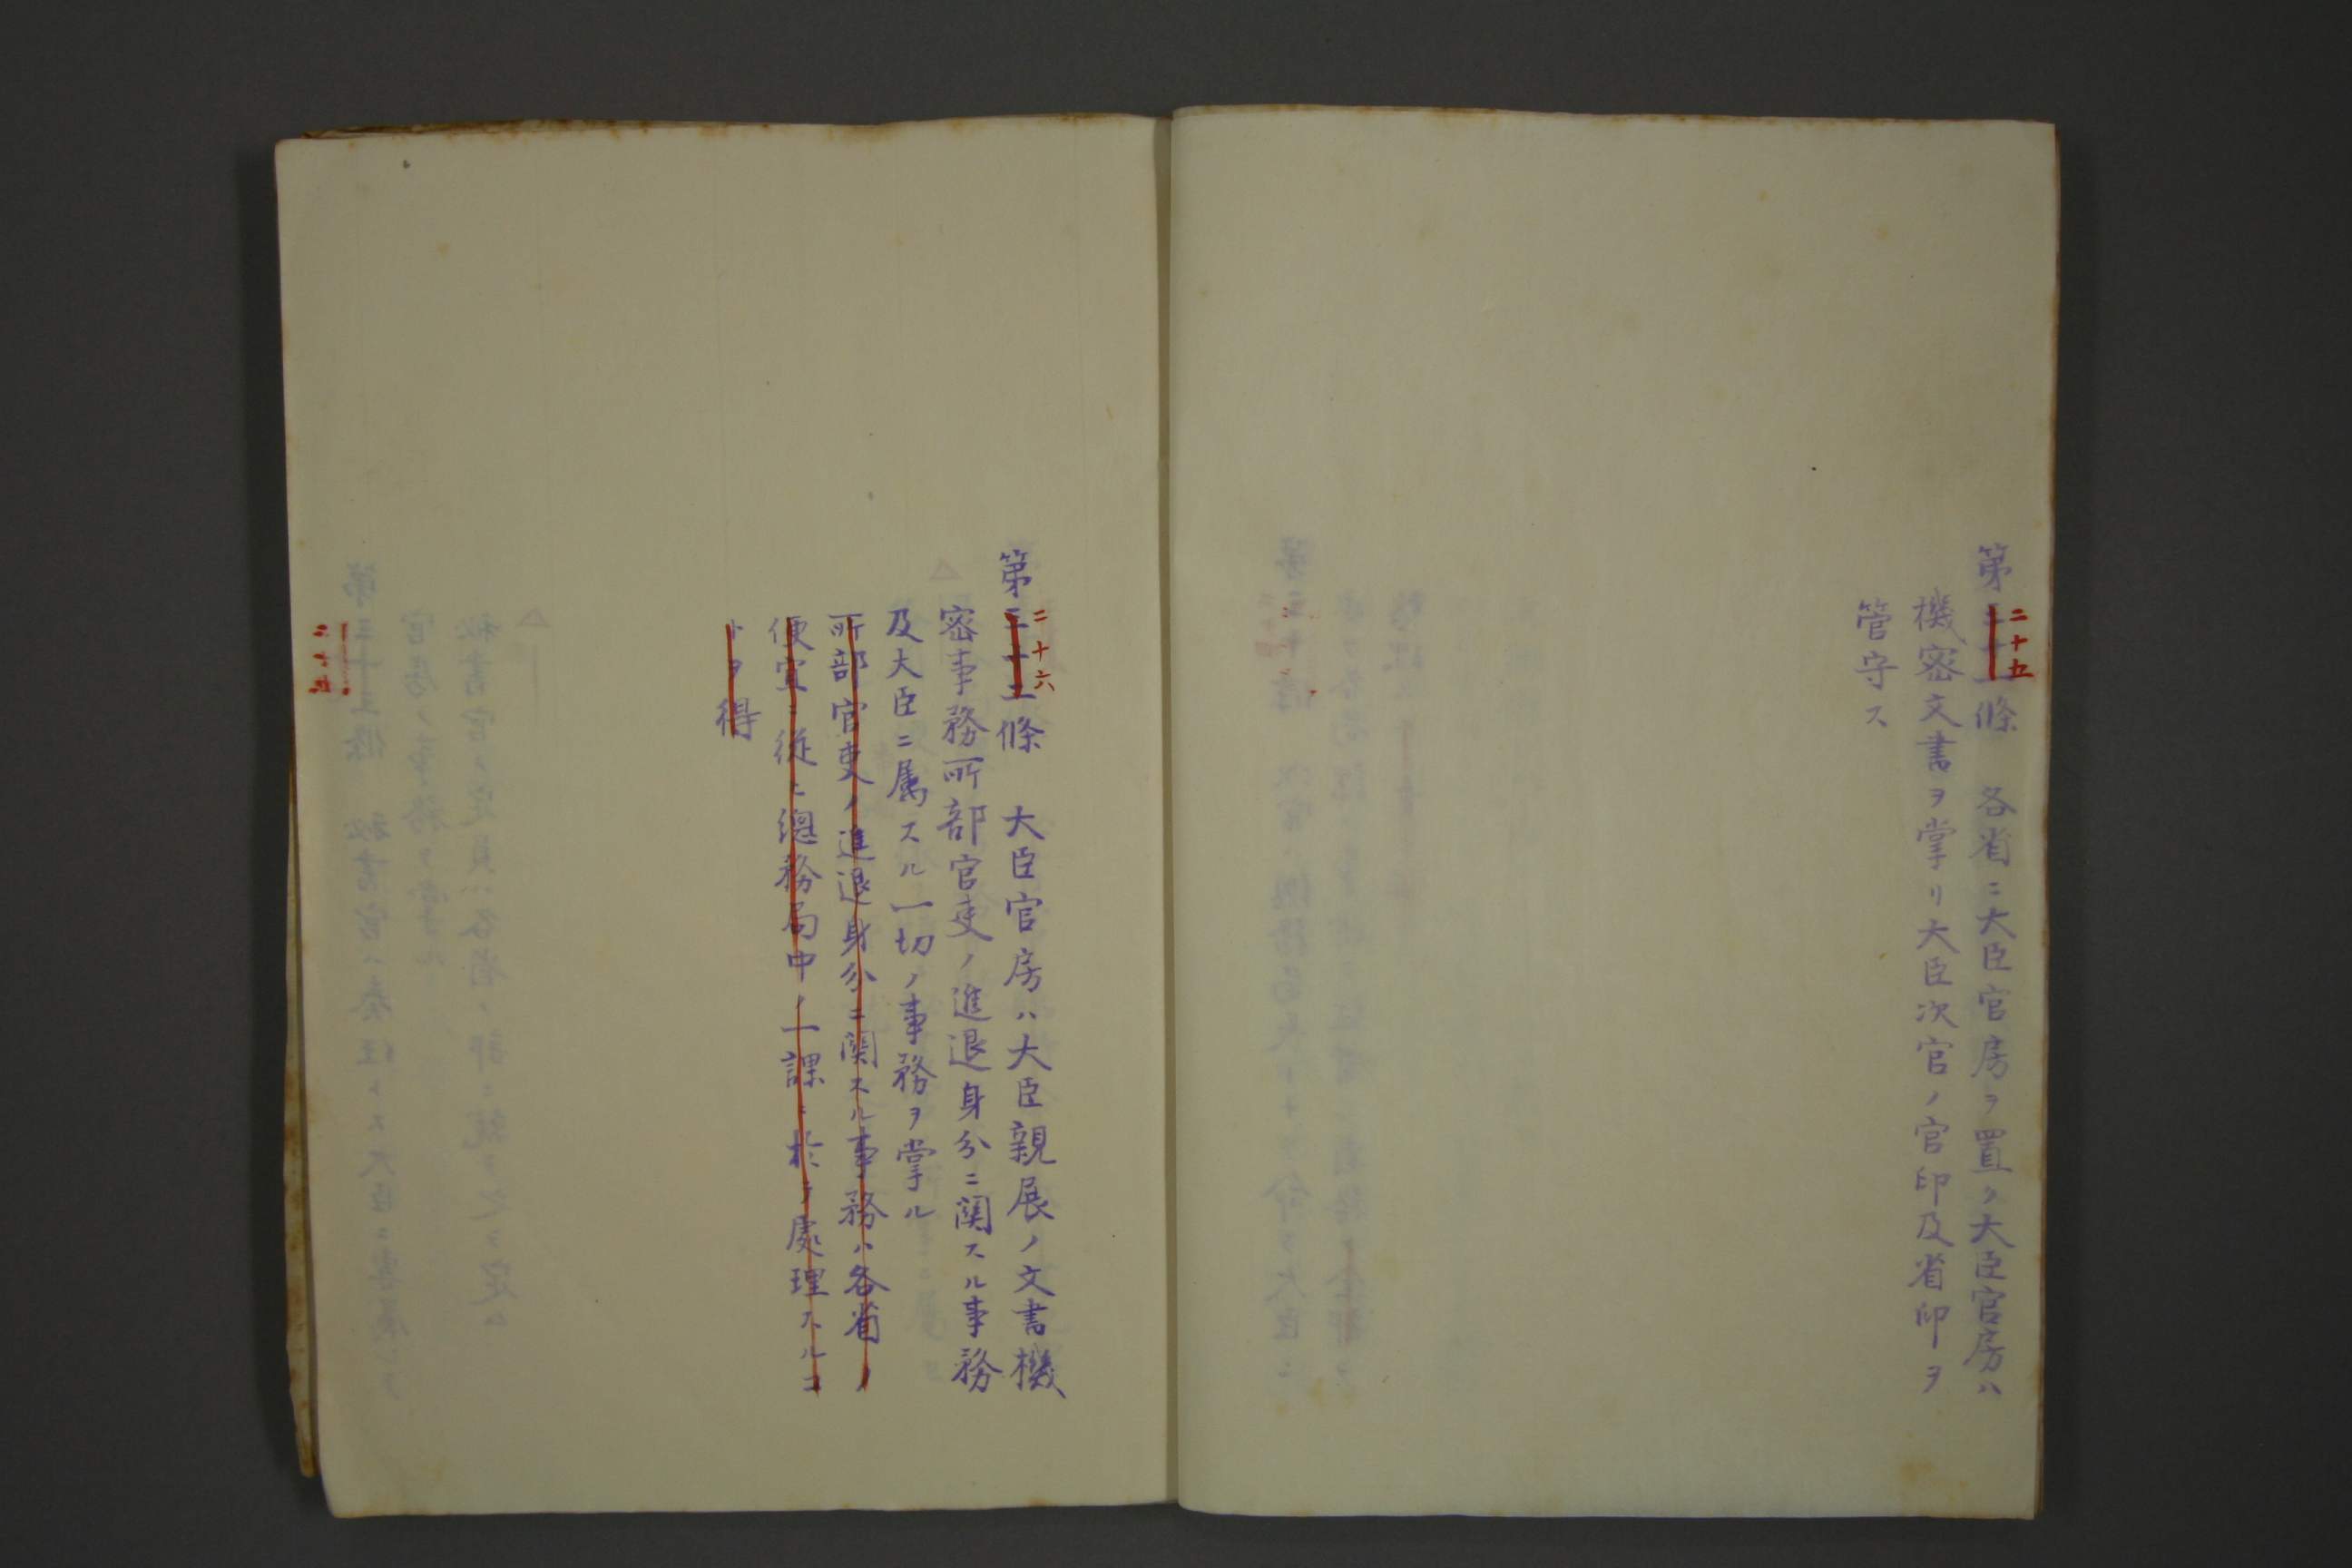 第三十一條　各省ニ大臣官房ヲ置ク大臣官房ハ
二十五
機密文書ヲ掌リ大臣次官ノ官印及省印ヲ
管守ス
第三十二條　大臣官房ハ大臣親展ノ文書機
二十六
密事務所部官吏ノ進退身分ニ関スル事務
及大臣ニ属スル一切ノ事務ヲ掌ル
所部官吏ノ進退身分ニ関スル事務ハ各省ノ
便宜ニ従ヒ總務局中ノ一課ニ於テ處理スルコ
トヲ得